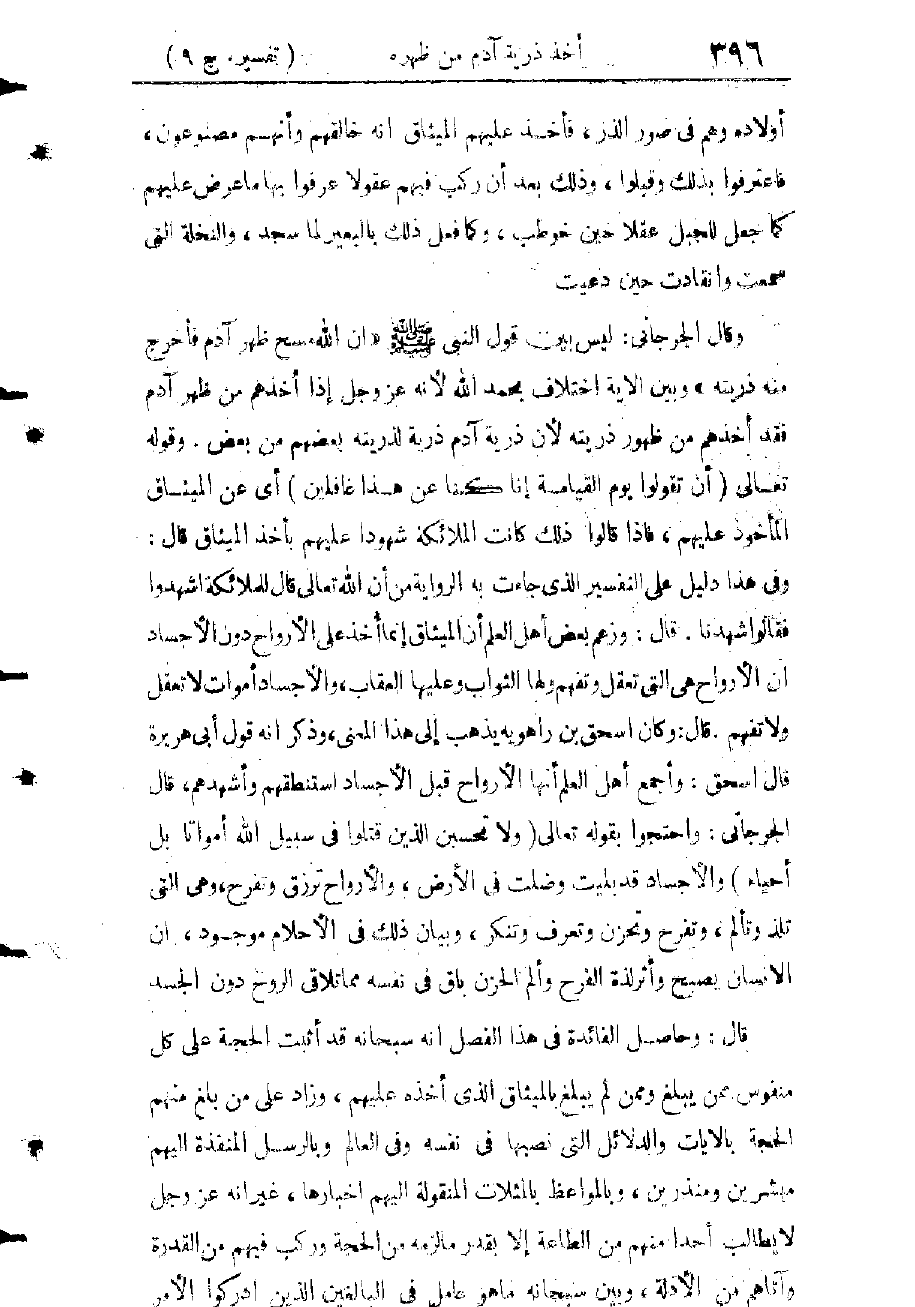 ٣٩٦ أخذ ذرية آدم من ظهره ( تفسير. ج ٩ )
أولاده وهم فى صور الذر ، فأخذ عليهم الميثاق انه خالقهم وأنهم مصنوعون ،
فاعترفوا بذلك وقبلوا ، وذلك بعد أن ركب فيهم عقولا عرفوا بها ماعرض عليهم
كما جعل للجبل عقلا حين خوطب ، وكما فعل ذلك بالبعير لما سجد ، والنخلة التى
سمعت وانقادت حين دعيت
وقال الجرجانى : ليس بين قول النبى ﷺ « ان الله مسح ظهر آدم فأخرج
منه ذريته » وبين الاية اختلاف بحمد الله لأنه عز وجل إذا أخذهم من ظهر آدم
فقد أخذهم من ظهور ذريته لأن ذرية آدم ذرية لذريته بعضهم من بعض . وقوله
تعالى ( أن تقولوا يوم القيامة إنا كنا عن هذا غافلين ) أى عن الميثاق
المأخوذ عليهم ، فاذا قالوا ذلك كانت الملائكة شهودا عليهم بأخذ الميثاق قال :
وفى هذا دليل على التفسير الذى جاءت به الرواية من أن الله تعالى قال للملائكة اشهدوا
فقالوا شهدنا . قال : وزعم بعض أهل العلم أن الميثاق إنما أُخذ على الأرواح دون الأجساد
ان الأرواح هى التى تعقل وتفهم ولها الثواب وعليها العقاب ، والأجساد أموات لا تعقل
ولا تفهم . قال : وكان اسحق بن راهويه يذهب إلى هذا المعنى ، وذكر انه قول أبى هريرة
قال اسحق : وأجمع أهل العلم أنها الأرواح قبل الأجساد استنطقهم وأشهدهم ، قال
الجرجانى : واحتجوا بقوله تعالى ( ولا تحسبن الذين قتلوا فى سبيل الله أمواتا بل
أحياء ) والأجساد قد بليت وضلت فى الأرض ، والأرواح ترزق وتفرح ، وهى التى
تلذ وتألم ، وتفرح وتحزن وتعرف وتنكر ، وبيان ذلك فى الأحلام موجود ، ان
الانسان يصبح وأثر لذة الفرح وألم الحزن باق فى نفسه مما تلاقى الروح دون الجسد
قال : وحاصل الفائدة فى هذا الفصل انه سبحانه قد أثبت الحجة على كل
منفوس ممن يبلغ وممن لم يبلغ بالميثاق الذى أخذه عليهم ، وزاد على من بلغ منهم
الحجة بالايات والدلائل التى نصبها فى نفسه وفى العالم وبالرسل المنفذة اليهم
مبشرين ومنذرين ، وبالمواعظ بالمثلات المنقولة اليهم اخبارها ، غير انه عز وجل
لا يطالب أحدا منهم من الطاعة إلا بقدر مالزمه من الحجة وركب فيهم من القدرة
وآتاهم من الأدلة ، وبين سبحانه ماهو عامل فى البالغين الذين ادركوا الأمر